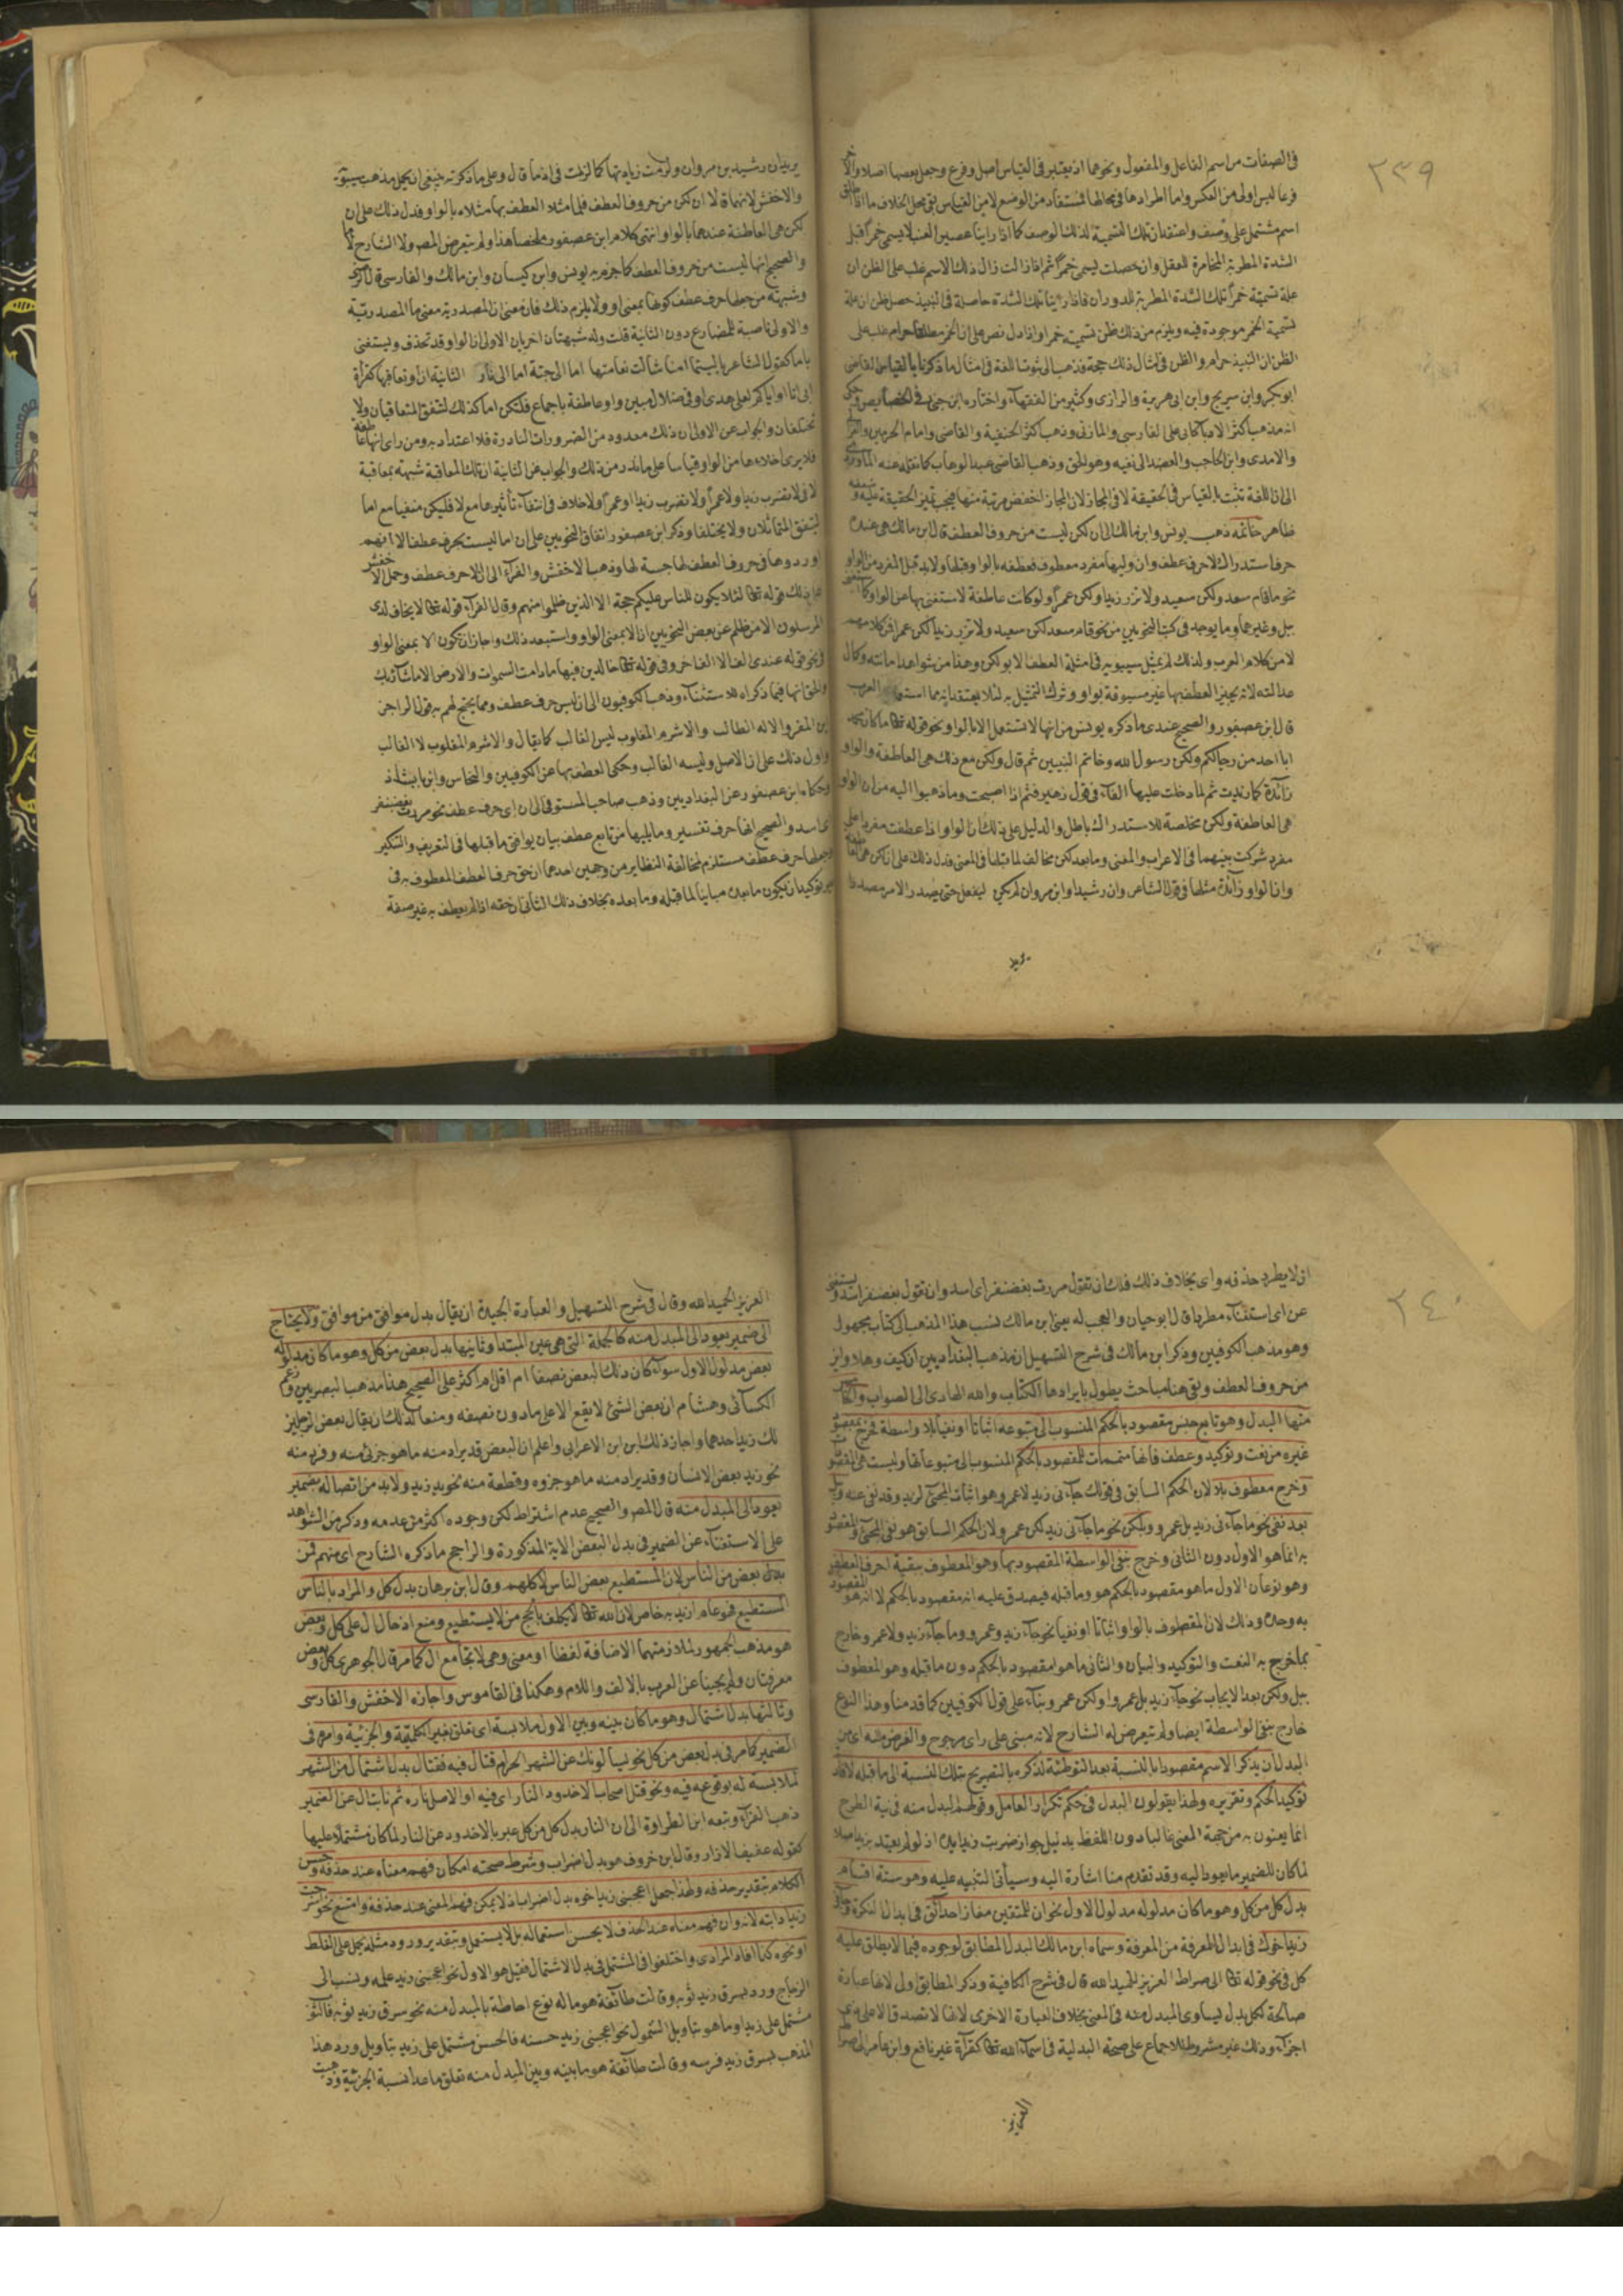 ٢٣٩
فى الصفات من اسم الفاعل والمفعول ونحوهما اذ يعتبر فى القياس اصل وفرع وجعل بعضها اصلا والاخر
فرعا ليس اولى من العكس واما اطرادها فى محالها فمستفاد من الوضع لا من القياس بقى محل الخلاف ما اذا اطلق
اسم مشتمل على وصف واعتقدنا ان تلك التسمية لذلك الوصف كما اذا راينا عصير العنب لا يسمى خمرا قبل
الشدة المطربة المخامرة للعقل وان حصلت يسمى خمرا ثم اذا زالت زال ذلك الاسم غلب على الظن ان
علة تسميته خمرا تلك الشدة المطربة للدوران فاذا رأينا تلك الشدة حاصلة فى النبيذ حصل ظن ان علة
تسمية الخمر موجودة فيه ويلزم من ذلك ظن تسميته خمرا واذا دل نص على ان الخمر مطلقا حرام غلب على
الظن ان النبيذ حرام والظن فى مثال ذلك حجة فذهب الى ثبوت اللغة فى مثال ما ذكرنا بالقياس القاضى
ابو بكر وابن سريج وابن ابى هريرة والرازى وكثير من الفقهاء واختاره ابن جنى فى الخصايص وحكى
انه مذهب اكثر الادباء كابى على الفارسى والمازنى وذهب اكثر الحنفية والقاضى وامام الحرمين والغزالى
والامدى وابن الحاجب والعضد الى نفيه وهو الحق وذهب القاضى عبد الوهاب كما نقله عنه المازرى
الى ان اللغة تثبت بالقياس فى الحقيقة لا فى المجاز لان المجاز اخفض رتبة منها فيجب تميز الحقيقة عليه وضعفه
ظاهر خاتمة ذهب يونس وابن مالك الى ان لكن ليست من حروف العطف قال ابن مالك هى عنده
حرف استدراك لا حرف عطف وان وليها مفرد معطوف فعطفه بالواو قبلها ولا بد قبل المفرد من الواو
نحو ما قام سعد ولكن سعيد ولا تزر زيدا ولكن عمرا ولو كانت عاطفة لاستغنى بها عن الواو كما استغنى
ببل وغيرها وما يوجد فى كتب النحويين من نحو قام سعد لكن سعيد ولا تزر زيدا لكن عمرا فمن كلامهم
لا من كلام العرب ولذلك لم يمثل سيبويه فى امثلة العطف الا بولكن وهذا من شواهد امانته وكمال
عدالته لانه يجيز العطف بها غير مسبوقة بواو وترك التمثيل به لئلا يعتقد انه مما استعملته العرب
قال ابن عصفور والصحيح عندى ما ذكره يونس من انها لا تستعمل الا بالواو ونحو قوله تعالى ما كان محمد
ابا احد من رجالكم ولكن رسول الله وخاتم النبيين ثم قال ولكن مع ذلك هى العاطفة والواو
زائدة كما زيدت ثم لما دخلت عليها الفاء فى قول زهير فثم اذا اصبحت وما ذهبوا اليه من ان الواو
هى العاطفة ولكن مخلصة للاستدراك باطل والدليل على ذلك ان الواو اذا عطفت مفردا على
مفرد شركت بينهما فى الاعراب والمعنى وما بعد لكن مخالف لما قبلها فى المعنى فدل ذلك على ان لكن هى العاطفة
وان الواو زائدة مثلها فى قول الشاعر وان رشيدا وابن مروان لم يكن ليفعل حتى يصدر الامر مصدرا
يريد
يريد ان رشيد بن مروان ولزمت زيادتها كما لزمت فى اذما قال وعلى ما ذكرته ينبغى ان يحمل مذهب سيبويه
والاخفش لانهما قالا ان لكن من حروف العطف فلما مثلا العطف بها مثلاه بالواو فدل ذلك على ان
لكن هى العاطفة عندهما بالواو انتهى كلام ابن عصفور ملخصا هذا ولم يتعرض المص ولا الشارح لاما
والصحيح انها ليست من حروف العطف كما جزم به يونس وابن كيسان وابن مالك والفارسى
وشبهته من جعلها حرف عطف كونها بمعنى او ولا يلزم ذلك فان معنى ان المصدرية معنى ما المصدرية
والاولى ناصبة للمضارع دون الثانية قلت وله شبهتان اخريان الاولى ان الواو قد تحذف ويستغنى
باما كقول الشاعر يا ليتما امنا شالت نعامتها اما الى جنة اما الى نار الثانية ان او تعاقبها كقرأة
ابى انا او اياكم لعلى هدى او فى ضلال مبين واو عاطفة باجماع فلتكن اما كذلك لتتفق المتعاقبان ولا
تختلفان والجواب عن الاولى ان ذلك معدود من الضرورات النادرة فلا اعتداد به ومن راى انها عاطفة
فلا يرى اخلاءها من الواو قياسا على ما ندر من ذلك والجواب عن الثانية ان تلك المعاقبة شبيهة بمعاقبة
لا فى لا تضرب زيدا ولا عمرا ولا تضرب زيدا او عمرا ولا خلاف فى انتفاء تأثيرها مع لا فليكن منفيا مع اما
ليتفق المتماثلان ولا يختلفا وذكر ابن عصفور اتفاق النحويين على ان اما ليست بحرف عطف الا انهم
اوردوها فى حروف العطف لمصاحبتها لها وذهب الاخفش والفراء الى ان الا حرف عطف وحمل الاخفش
على ذلك قوله تعالى لئلا يكون للناس عليكم حجة الا الذين ظلموا منهم وقال الفراء قوله تعالى لا يخاف لدى
المرسلون الا من ظلم عن بعض النحويين ان الا بمعنى الواو واستبعد ذلك واجاز ان تكون الا بمعنى الواو
فى نحو قوله عندى الف الا الف اخر وفى قوله تعالى خالدين فيها ما دامت السموات والارض الا ما شآء ربك
والحق انها فيما ذكراه للاستثناء وذهب الكوفيون الى ان ليس حرف عطف ومما يحتج لهم به قول الراجز
اين المفر والاله الطالب والاشرم المغلوب ليس الغالب كما يقال والاشرم المغلوب لا الغالب
واول ذلك على ان الاصل وليسه الغالب وحكى العطف بها عن الكوفيين والنحاس وابن بابشاذ
وحكاه ابن عصفور عن البغداديين وذهب صاحب المستوفى الى ان اى حرف عطف نحو مررت بغضنفر
اى اسد والصحيح انها حرف تفسير وما يليها من تابع عطف بيان يوافق ما قبلها فى التعريف والتنكير
وجعلها حرف عطف مستلزم لمخالفة النظاير من وجهين احدهما ان حق حرف العطف المعطوف به فى
غير توكيد ان يكون ما بعده مباينا لما قبله وما بعده بخلاف ذلك الثانى ان حقه اذا لم يعطف به غير صفة
٢٤٠
ان لا يطرد حذفه واى بخلاف ذلك فلك ان تقول مررت بغضنفر اى اسد وان تقول بغضنفر اسد ويستغنى
عن اى استغناء مطردا قال ابو حيان والعجب له يعنى ابن مالك نسب هذا المذهب الى كتاب مجهول
وهو مذهب الكوفيين وذكر ابن مالك فى شرح التسهيل ان مذهب البغداديين ان كيف وهلا واين
من حروف العطف وبقى هنا مباحث يطول بايرادها الكتاب والله الهادى الى الصواب
منها البدل وهو تابع جنس مقصود بالحكم المنسوب الى متبوعه اثباتا او نفيا بلا واسطة فخرج بمقصود
غيره من نعت وتوكيد وعطف فانها متممات للمقصود بالحكم المنسوب الى متبوعاتها وليست هى المقصود
وخرج معطوف بلا لان الحكم السابق فى قولك جاءنى زيد لا عمرو وهو اثبات المجئ لزيد وقد نفى عنه وبل
بعد نفى نحو ما جاءنى زيد بل عمرو وبلكن نحو ما جاءنى زيد لكن عمرو لان الحكم السابق هو نفى المجئ والمقصود
به انما هو الاول دون الثانى وخرج بنفى الواسطة المقصود بها وهو المعطوف ببقية احرف العطف
وهو نوعان الاول ما هو مقصود بالحكم هو وما قبله فيصدق عليه انه مقصود بالحكم لا انه هو المقصود
به وحده وذلك لان المعطوف بالواو اثباتا او نفيا نحو جاء زيد وعمرو وما جاء زيد ولا عمرو وخارج
بما خرج به النعت والتوكيد والبيان والثانى ما هو مقصود بالحكم دون ما قبله وهو المعطوف
ببل ولكن بعد الايجاب نحو جاء زيد بل عمرو او لكن عمرو بناء على قول الكوفيين كما قدمنا وهذا النوع
خارج بنفى الواسطة ايضا ولم يتعرض له الشارح لانه مبنى على راى مرجوح والغرض منه اى من
البدل ان يذكر الاسم مقصودا بالنسبة بعد التوطئة لذكره بالتصريح بتلك النسبة الى ما قبله لافادة
توكيد الحكم وتقريره ولهذا يقولون البدل فى حكم تكرار العامل وقولهم المبدل منه فى نية الطرح
انما يعنون به من جهة المعنى غالبا دون اللفظ بدليل جواز ضربت زيدا يده اذ لو لم يعتد بزيد اصلا
لما كان للضمير ما يعود اليه وقد تقدم منا اشارة اليه وسيأتى التنبيه عليه وهو ستة اقسام
بدل كل من كل وهو ما كان مدلوله مدلول الاول نحو ان للمتقين مفازا حدائق فى ابدال النكرة وجاء
زيد اخوك فى ابدال المعرفة من المعرفة وسماه ابن مالك البدل المطابق لوجوده فيما لا يطلق عليه
كل فى نحو قوله تعالى الى صراط العزيز الحميد الله قال فى شرح الكافية وذكر المطابق اولى لانها عبارة
صالحة لكل بدل يساوى المبدل منه فى المعنى بخلاف العبارة الاخرى لانها لا تصدق الا على ذى
اجزاء وذلك غير مشروط للاجماع على صحة البدلية فى اسماء الله تعالى كقرآة غير نافع وابن عامر الى صراط
العزيز
العزيز الحميد الله وقال فى شرح التسهيل والعبارة الجيدة ان يقال بدل موافق من موافق ولا يحتاج
الى ضمير يعود الى المبدل منه كالجملة التى هى عين المبتدا وثانيها بدل بعض من كل وهو ما كان مدلوله
بعض مدلول الاول سواء كان ذلك البعض نصفا ام اقل ام اكثر على الصحيح هذا مذهب البصريين وزعم
الكسائى وهشام ان بعض الشئ لا يقع الا على ما دون نصفه ومنعا لذلك ان يقال بعض الرجلين
لك زيد احدهما واجاز ذلك ابن الاعرابى واعلم ان البعض قد يراد منه ما هو جزئى منه وفرد منه
نحو زيد بعض الانسان وقد يراد منه ما هو جزؤه وقطعة منه نحو يد زيد ولا بد من اتصاله بضمير
يعود الى المبدل منه قال المص والصحيح عدم اشتراطه لكن وجوده اكثر من عدمه وذكر من الشواهد
على الاستغناء عن الضمير فى بدل البعض الاية المذكورة والراجح ما ذكره الشارح اى منهم فمن
بدل بعض من الناس لان المستطيع بعض الناس لا كلهم وقال ابن برهان بدل كل والمراد بالناس
المستطيع فهو عام اريد به خاص لان الله تعالى لا يكلف بالحج من لا يستطيع ومنع ادخال ال على كل وبعض
هو مذهب الجمهور لملازمتهما الاضافة لفظا او معنى وهى لا تجامع ال كما مر قال الجوهرى كل وبعض
معرفتان ولم يجيئا عن العرب بالالف واللام وهكذا فى القاموس واجازه الاخفش والفارسى
وثالثها بدل اشتمال وهو ما كان بينه وبين الاول ملابسة اى تعلق بغير الكلية والجزئية وامره فى
الضمير كما مر فى بدل بعض من كل نحو يسالونك عن الشهر الحرام قتال فيه فقتال بدل اشتمال من الشهر
لملابسته له بوقوعه فيه ونحو قتل اصحاب الاخدود النار اى فيه او الاصل ناره ثم نابت ال عن الضمير
ذهب الفراء وتبعه ابن الطراوة الى ان النار بدل كل من كل عبر بالاخدود عن النار لما كان مشتملا عليها
كقوله عفيف الازار وقال ابن خروف هو بدل اضراب وشرط صحته امكان فهم معناه عند حذفه وحسن
الكلام بتقدير حذفه ولهذا جعل اعجبنى زيد اخوه بدل اضراب اذ لا يمكن فهم المعنى عند حذفه وامتنع نحو
زيدا دابته لانه وان فهم معناه عند الحذف لا يحسن استعماله بل لا يستعمل وبتقدير ورود مثله يحمل على الغلط
او نحوه كذا افاد المرادى واختلفوا فى المشتمل فى بدل الاشتمال فقيل هو الاول نحو اعجبنى زيد علمه ونسب الى
الزجاج ورد بسرق زيد ثوبه وقالت طائفة هو ماله نوع احاطة بالمبدل منه نحو سرق زيد ثوبه فالثوب
مشتمل على زيد او ما هو بتاويل الشمول نحو اعجبنى زيد حسنه فالحسن مشتمل على زيد بتاويل ورد هذا
المذهب بسرق زيد فرسه وقالت طائفة هو ما بينه وبين المبدل منه تعلق ما عدا نسبة الجزئية